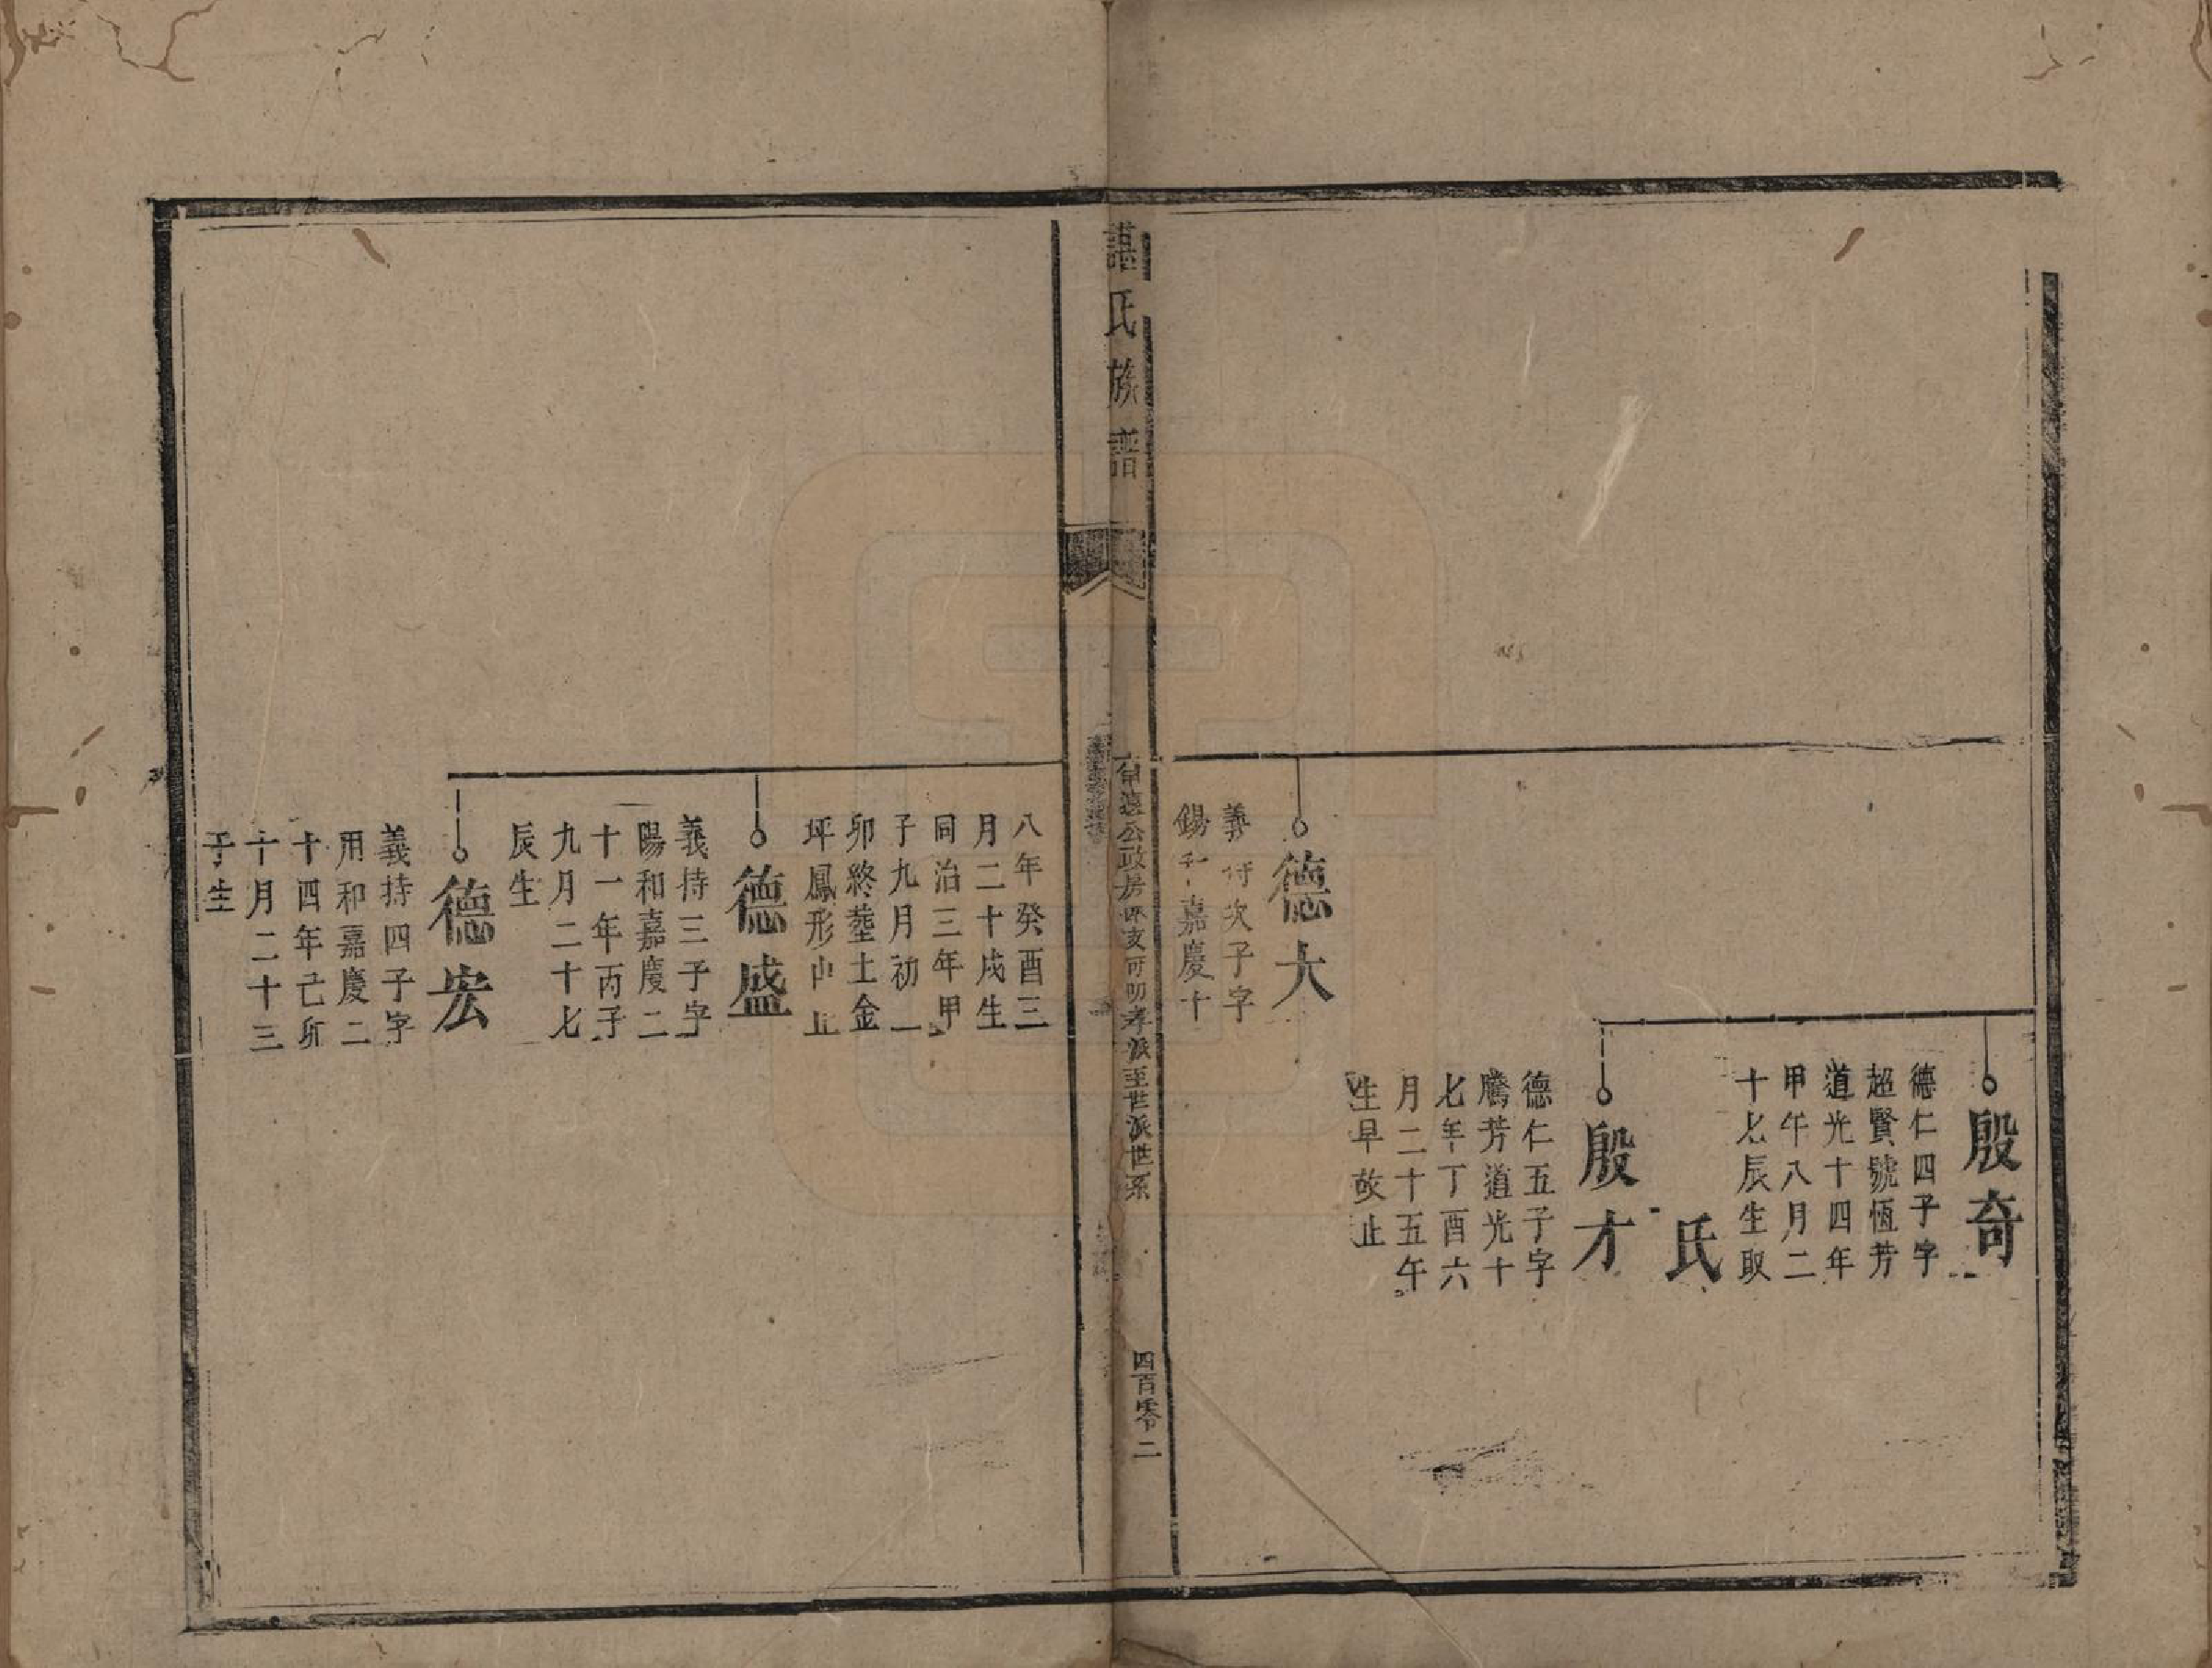 殷奇
德仁四子字
超賢號恆芳
道光十四年
甲午八月二
十七辰生取
氏
殷才
德仁五子字
騰芳道光十
七年丁酉六
月二十五午
生早故止
德大
義持次子字
錫和嘉慶十
諶氏族譜
公政房
派至世派世系
四百零二
八年癸酉三
月二十戌生
同治三年甲
子九月初一
卯終塟土金
坪鳳形山止
德盛
義持三子字
陽和嘉慶二
十一年丙子
九月二十七
辰生
德宏
義持四子字
用和嘉慶二
十四年己卯
十月二十三
子生